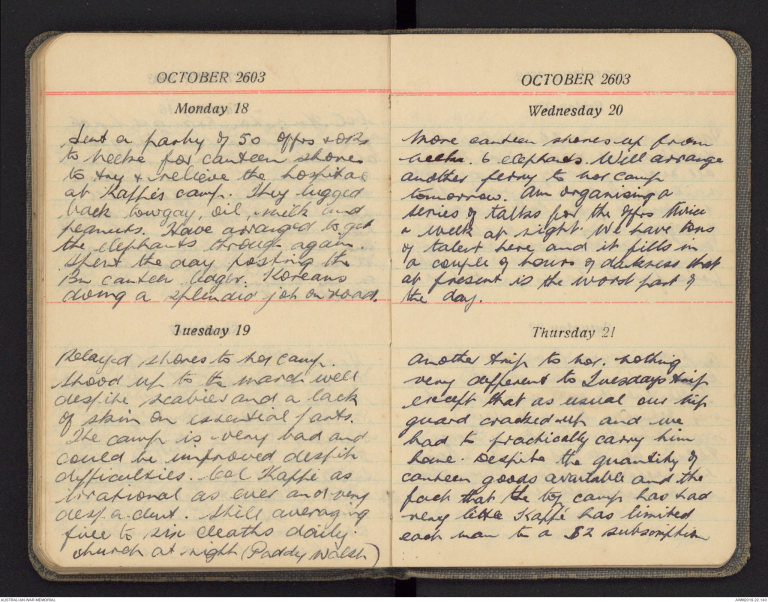 OCTOBER 2603
Monday 18
Sent a party of 50 offrs & ORs
to Neeke for canteen stores
to try & relieve the hospital
at Kappe's camp. They lugged
back towgay, oil, milk and
peanuts. Have arranged to get
the elephants through again.
Spent the day posting the
Bn canteen ledger. Koreans
doing a splendid job on road.
Tuesday 19
Relayed stores to hosp camp.
Stood up to the march well
despite scabies and a lack
of skin on essential parts.
The camp is very bad and
could be improved despite
difficulties. Col Kappé as
irrational as ever and very
despondent. Still averaging
five to six deaths daily.
Church at night (Paddy Walsh)
OCTOBER 2603
Wednesday 20
More canteen stores up from
Neeke. 6 elephants. Will arrange
another ferry to hos camp
tomorrow. Am organising a
series of talks for the offrs twice
a week at night. We have tons
of talent here and it fills in
a couple of hours of darkness that
at present is the worst part of
the day.
Thursday 21
Another trip to hos. Nothing
very different to Tuesdays trip
except that as usual our nip
guard cracked up and we
had to practically carry him
home. Despite the quantity of
canteen goods available and the
fact that the top camp has had
very little Kappé has limited
each man to a $2 subscription
AUSTRALIAN WAR MEMORIAL